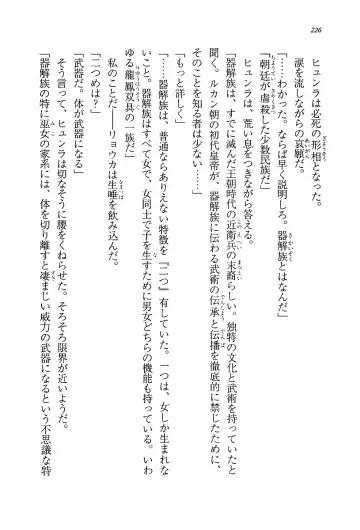 226
ヒュンラは必死の形相となった。
涙を流しながらの哀願だ。
「……わかった。ならば早く説明しろ。器解族とはなんだ」
「朝廷が虐殺した少数民族だ」
ヒュンラは、荒い息をつきながら答える。
「器解族は、すでに滅んだ王朝時代の近衛兵の末裔らしい。独特の文化と武術を持っていたと
聞く。ルカン朝の初代皇帝が、器解族に伝わる武術の伝承と伝播を徹底的に禁じたために、
そのことを知る者は少ない……」
「もっと詳しく」
「器解族は、普通ならありえない特徴を『二つ』有していた。一つは、女しか生まれな
いこと。器解族はすべて女で、女同士で子を生すために男女どちらの機能も持っている。いわ
ゆる龍鳳双具の一族だ」
私のことだ――リョウカは生唾を飲み込んだ。
「二つめは?」
「武器だ。体が武器になる」
そう言って、ヒュンラは切なそうに腰をくねらせた。そろそろ限界が近いようだ。
「器解族の特に巫女の家系には、体を切り離すと凄まじい威力の武器になるという不思議な特